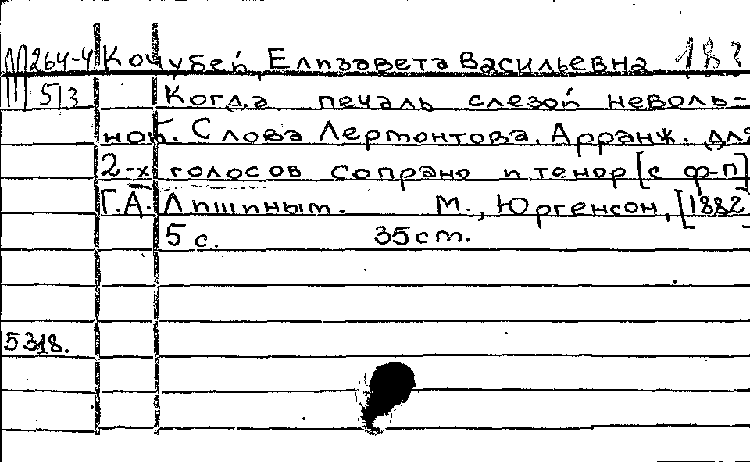 М 264-4 Кочубей, Елизавета Васильевна 183
5/3 Когда печаль слезой неволь-
ной. Слова Лермонтова. Арранж. для
2-х голосов сопрано и тенор [с ф-п]
Г.А. Лишиным. М., Юргенсон, [1882]
5 с. 35 ст.
5318.